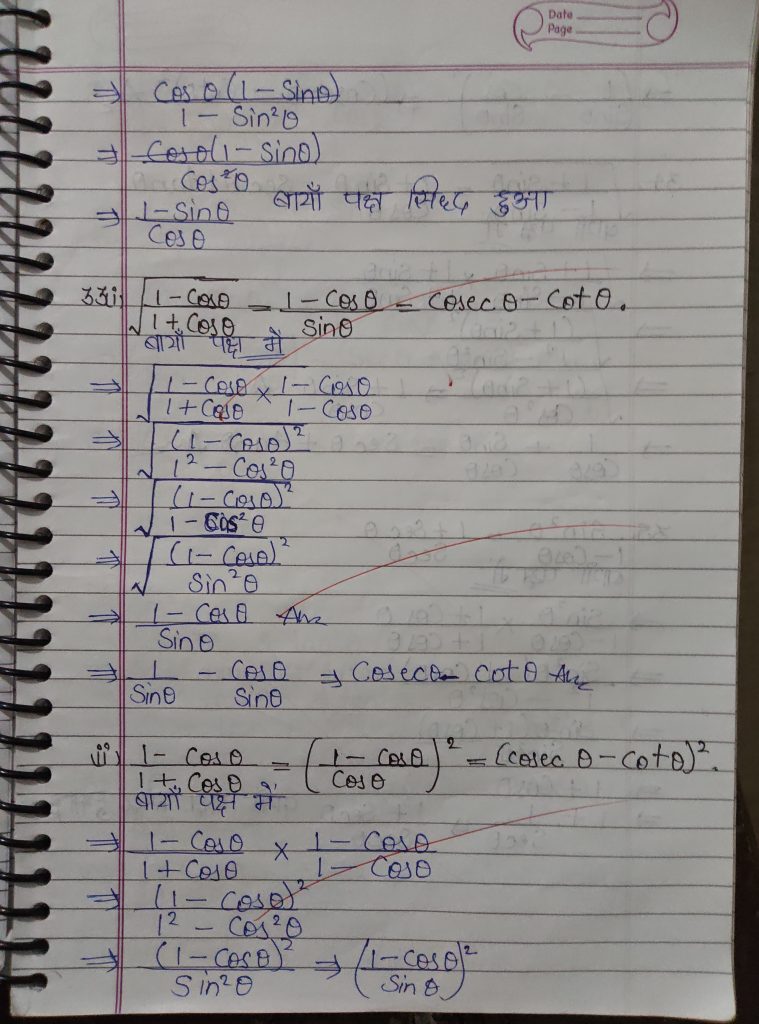 Date
Page
⇒ Cos θ (1 – Sinθ) / 1 – Sin²θ
⇒ Cosθ(1 – Sinθ) / Cos²θ
⇒ 1–Sinθ / Cosθ बायाँ पक्ष सिद्ध हुआ
i) √(1–Cosθ / 1+Cosθ) = 1–Cosθ / Sinθ = Cosec θ – Cot θ.
बायाँ पक्ष में
⇒ √(1–Cosθ / 1+Cosθ × 1–Cosθ / 1–Cosθ)
⇒ √((1–Cosθ)² / 1² – Cos²θ)
⇒ √((1–Cosθ)² / 1 – Cos²θ)
⇒ √((1–Cosθ)² / Sin²θ)
⇒ 1–Cosθ / Sinθ Ans
⇒ 1 / Sinθ – Cosθ / Sinθ ⇒ Cosecθ – Cot θ Ans
ii) 1– Cosθ / 1+ Cosθ = (1–Cosθ / Cosθ)² = (Cosec θ – Cotθ)².
बायाँ पक्ष में
⇒ 1–Cosθ / 1+Cosθ × 1–Cosθ / 1–Cosθ
⇒ (1–Cosθ)² / 1² – Cos²θ
⇒ (1–Cosθ)² / Sin²θ ⇒ (1–Cosθ / Sinθ)²